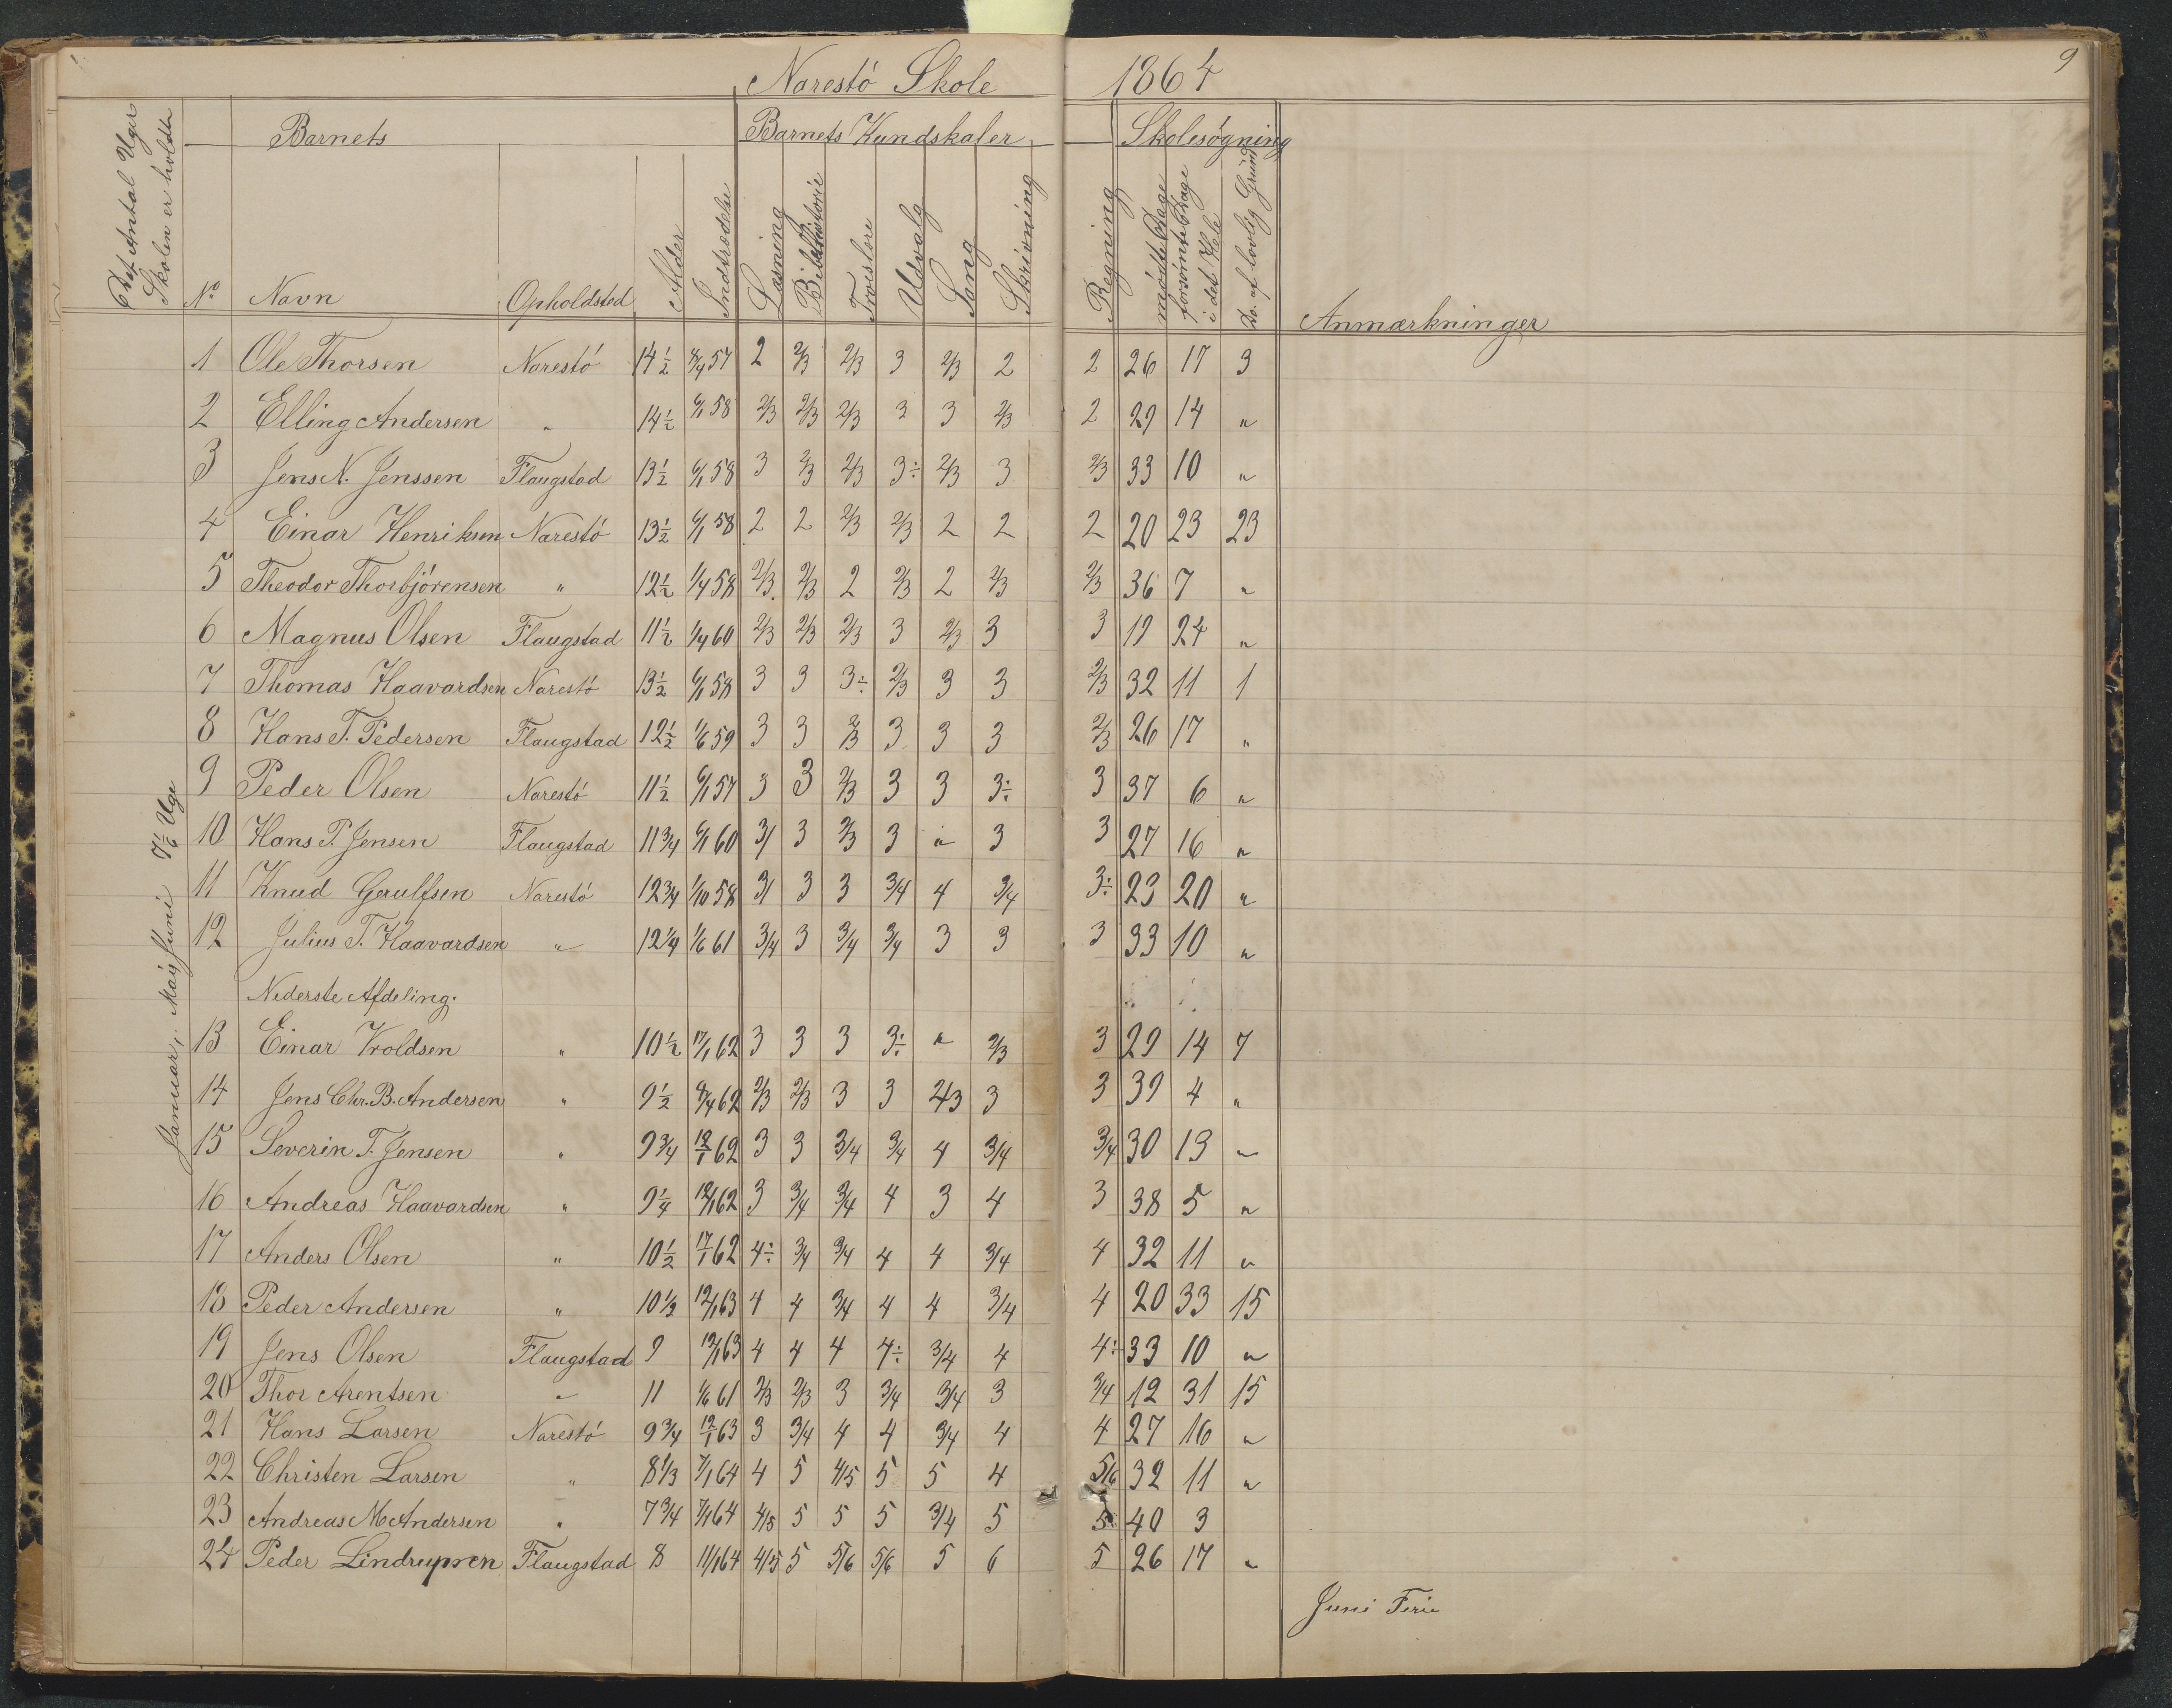 9
Narestó Skole 1864
Det Antal Uger Skolen er holdte
Barnets
Barnets Kundskaber
Skolesøgning
No Navn Opholdsted Alder Indtrædelse Læsning Bibelhistorie Troeslære Udvalg Sang Skrivning Regning mødte Dage forsömte Dage i det Hele Do. af lovlig Grund Anmærkninger
Januar, Mai, Juni 7 1/6 Uge
1 Ole Thorsen Narestó 14 1/2 8/4 57 2 2/3 2/3 3 2/3 2 2 26 17 3
2 Elling Andersen " 14 1/2 6/1 58 2/3 2/3 2/3 3 3 2/3 2 29 14 "
3 Jens N. Jenssen Flaugstad 13 1/2 6/1 58 3 2/3 2/3 3÷ 2/3 3 2/3 33 10 "
4 Einar Henriksen Narestó 13 1/2 6/1 58 2 2 2/3 2/3 2 2 2 20 23 23
5 Theodor Thorbjórensen " 12 1/2 1/4 58 2/3 2/3 2 2/3 2 2/3 2/3 36 7 "
6 Magnus Olsen Flaugstad 11 1/2 1/4 60 2/3 2/3 2/3 3 2/3 3 3 19 24 "
7 Thomas Haavardsen Narestó 13 1/2 6/1 58 3 3 3÷ 2/3 3 3 2/3 32 11 1
8 Hans T. Pedersen Flaugstad 12 1/2 1/6 59 3 3 2/3 3 3 3 2/3 26 17 "
9 Peder Olsen Narestó 11 1/2 6/1 57 3 3 2/3 3 3 3÷ 3 37 6 "
10 Hans P. Jensen Flaugstad 11 3/4 6/1 60 3/ 3 2/3 3 " 3 3 27 16 "
11 Knud Gerulfsen Narestó 12 3/4 1/10 58 3/ 3 3 3/4 4 3/4 3÷ 23 20 "
12 Julius T. Haavardsen " 12 1/4 1/6 61 3/4 3 3/4 3/4 3 3 3 33 10 "
Nederste Afdeling.
13 Einar Vroldsen " 10 1/2 17/1 62 3 3 3 3÷ " 2/3 3 29 14 7
14 Jens Chr. B. Andersen " 9 1/2 8/4 62 2/3 2/3 3 3 2/3 3 3 39 4 "
15 Severin T. Jensen " 9 3/4 12/1 62 3 3 3/4 3/4 4 3/4 3/4 30 13 "
16 Andreas Haavardsen " 9 1/4 12/1 62 3 3/4 3/4 4 3 4 3 38 5 "
17 Anders Olsen " 10 1/2 17/1 62 4÷ 3/4 3/4 4 4 3/4 4 32 11 "
18 Peder Andersen " 10 1/2 12/1 63 4 4 3/4 4 4 3/4 4 20 33 15
19 Jens Olsen Flaugstad 9 12/1 63 4 4 4 4÷ 3/4 4 4÷ 33 10 "
20 Thor Arentsen " 11 1/6 61 2/3 2/3 3 3/4 3/4 3 3/4 12 31 15
21 Hans Larsen Narestó 9 3/4 12/1 63 3 3/4 4 4 3/4 4 4 27 16 "
22 Christen Larsen " 8 1/3 7/1 64 4 5 4/5 5 5 4 5/6 32 11 "
23 Andreas M Andersen " 7 3/4 7/1 64 4/5 5 5 5 3/4 5 5 40 3
24 Peder Lindrupsen Flaugstad 8 11/1 64 4/5 5 5/6 5/6 5 6 5 26 17 "
Juni Ferie